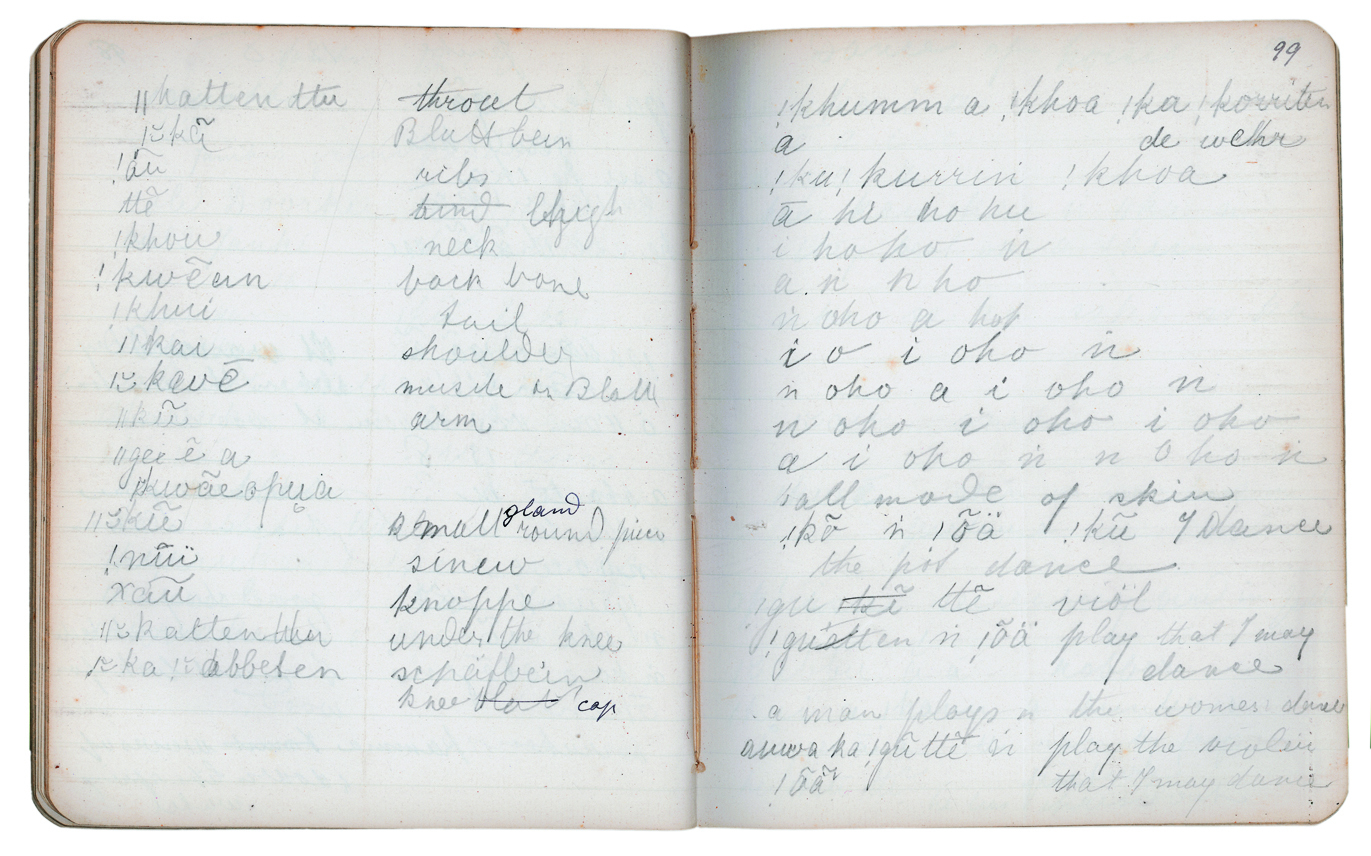 ǁhattenttu throat
Blattbein
!ãũ ribs
ttẽ thigh
!khou neck
!kwẽun back bone
!khui tail
ǁkai shoulder
muscle in Blatt
ǁkũ arm
ǁgee ẽ a
gland
a small round piece
!nũï sinew
xãũ knoppe
under the knee
schäfbein
knee cap
99
!khumm a !khoa !ka !korriten
a de wehr
!ku! kurrin !khoa
ā hi ho hu
i hoho n
a n n ho
n oho a hoh
i o i oho n
n oho a i oho n
n oho i oho i oho
a i oho n n oho n
ball made of skin
!kõ n !õä !kũ I dance
the pot dance
!gu ttẽ viöl
!guitten n !õä play that I may
dance
a man plays n the women dance
auwa ka !gũ ttẽ n play the violin
!õä that I may dance